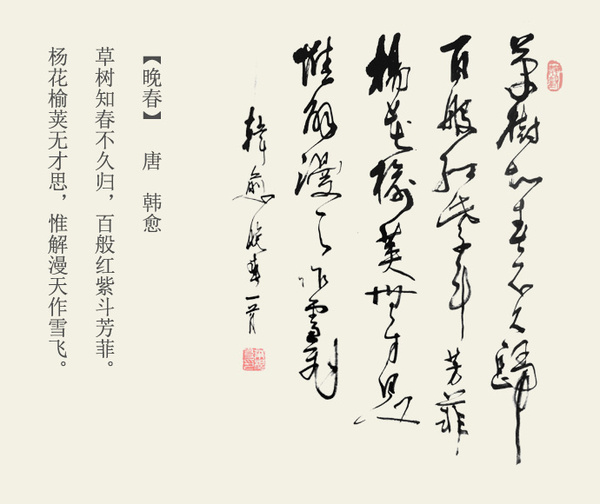 草樹知春不久歸
百般紅紫斗芳菲
楊花榆莢無才思
惟解漫天作雪飛
韓愈晚春一首
【晚春】 唐 韩愈
草树知春不久归，百般红紫斗芳菲。
杨花榆荚无才思，惟解漫天作雪飞。